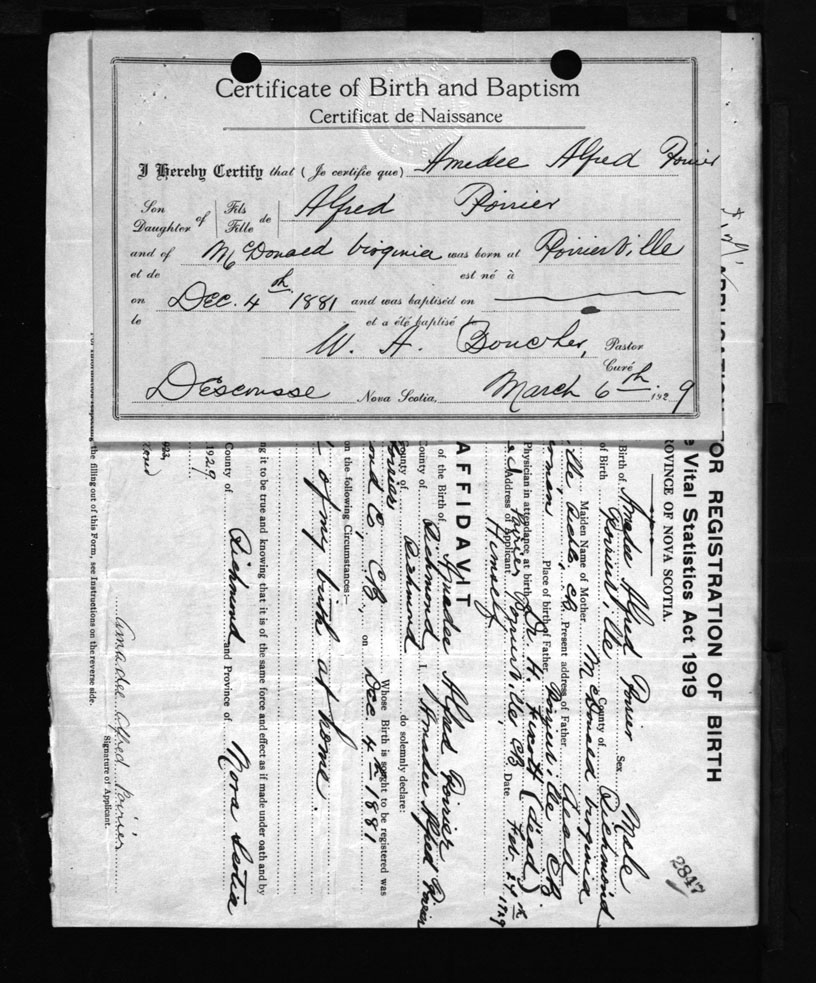 Certificate of Birth and Baptism
Certificat de Naissance
I Hereby Certify that (Je certifie que) Amedee Alfred Poirier
Son Daughter of Fils Fille de Alfred Poirier
and of McDonald Virginia was born at PoirierVille
et de est né à
on Dec. 4th 1881 and was baptised on
le et a été baptisé le
W. A. Boucher, Pastor
Curé
Descousse Nova Scotia, March 6th 1929
OR REGISTRATION OF BIRTH
e Vital Statistics Act 1919
ROVINCE OF NOVA SCOTIA.
2847
Birth of Amedee Alfred Poirier Sex Male
of Birth Poirierville County of Richmond
Maiden Name of Mother McDonald Virginia
Present address of Father dead
Place of birth of Father Poirierville CB
Physician in attendance at birth Dr. H. (dead)
Address of Applicant Poirierville CB Date Feb. 27th 1929
Himself
AFFIDAVIT
of the Birth of Amedee Alfred Poirier
County of Richmond I, Amedee Alfred Poirier
County of Richmond do solemnly declare:
Poirier Whose Birth is sought to be registered was
ond Co, CB., on Dec 4th 1881
on the following Circumstances:—
of my birth at home.
ng it to be true and knowing that it is of the same force and effect as if made under oath and by
County of Richmond and Province of Nova Scotia
1929
Amadee Alfred Poirier
Signature of Applicant.
the filling out of this Form, see Instructions on the reverse side.